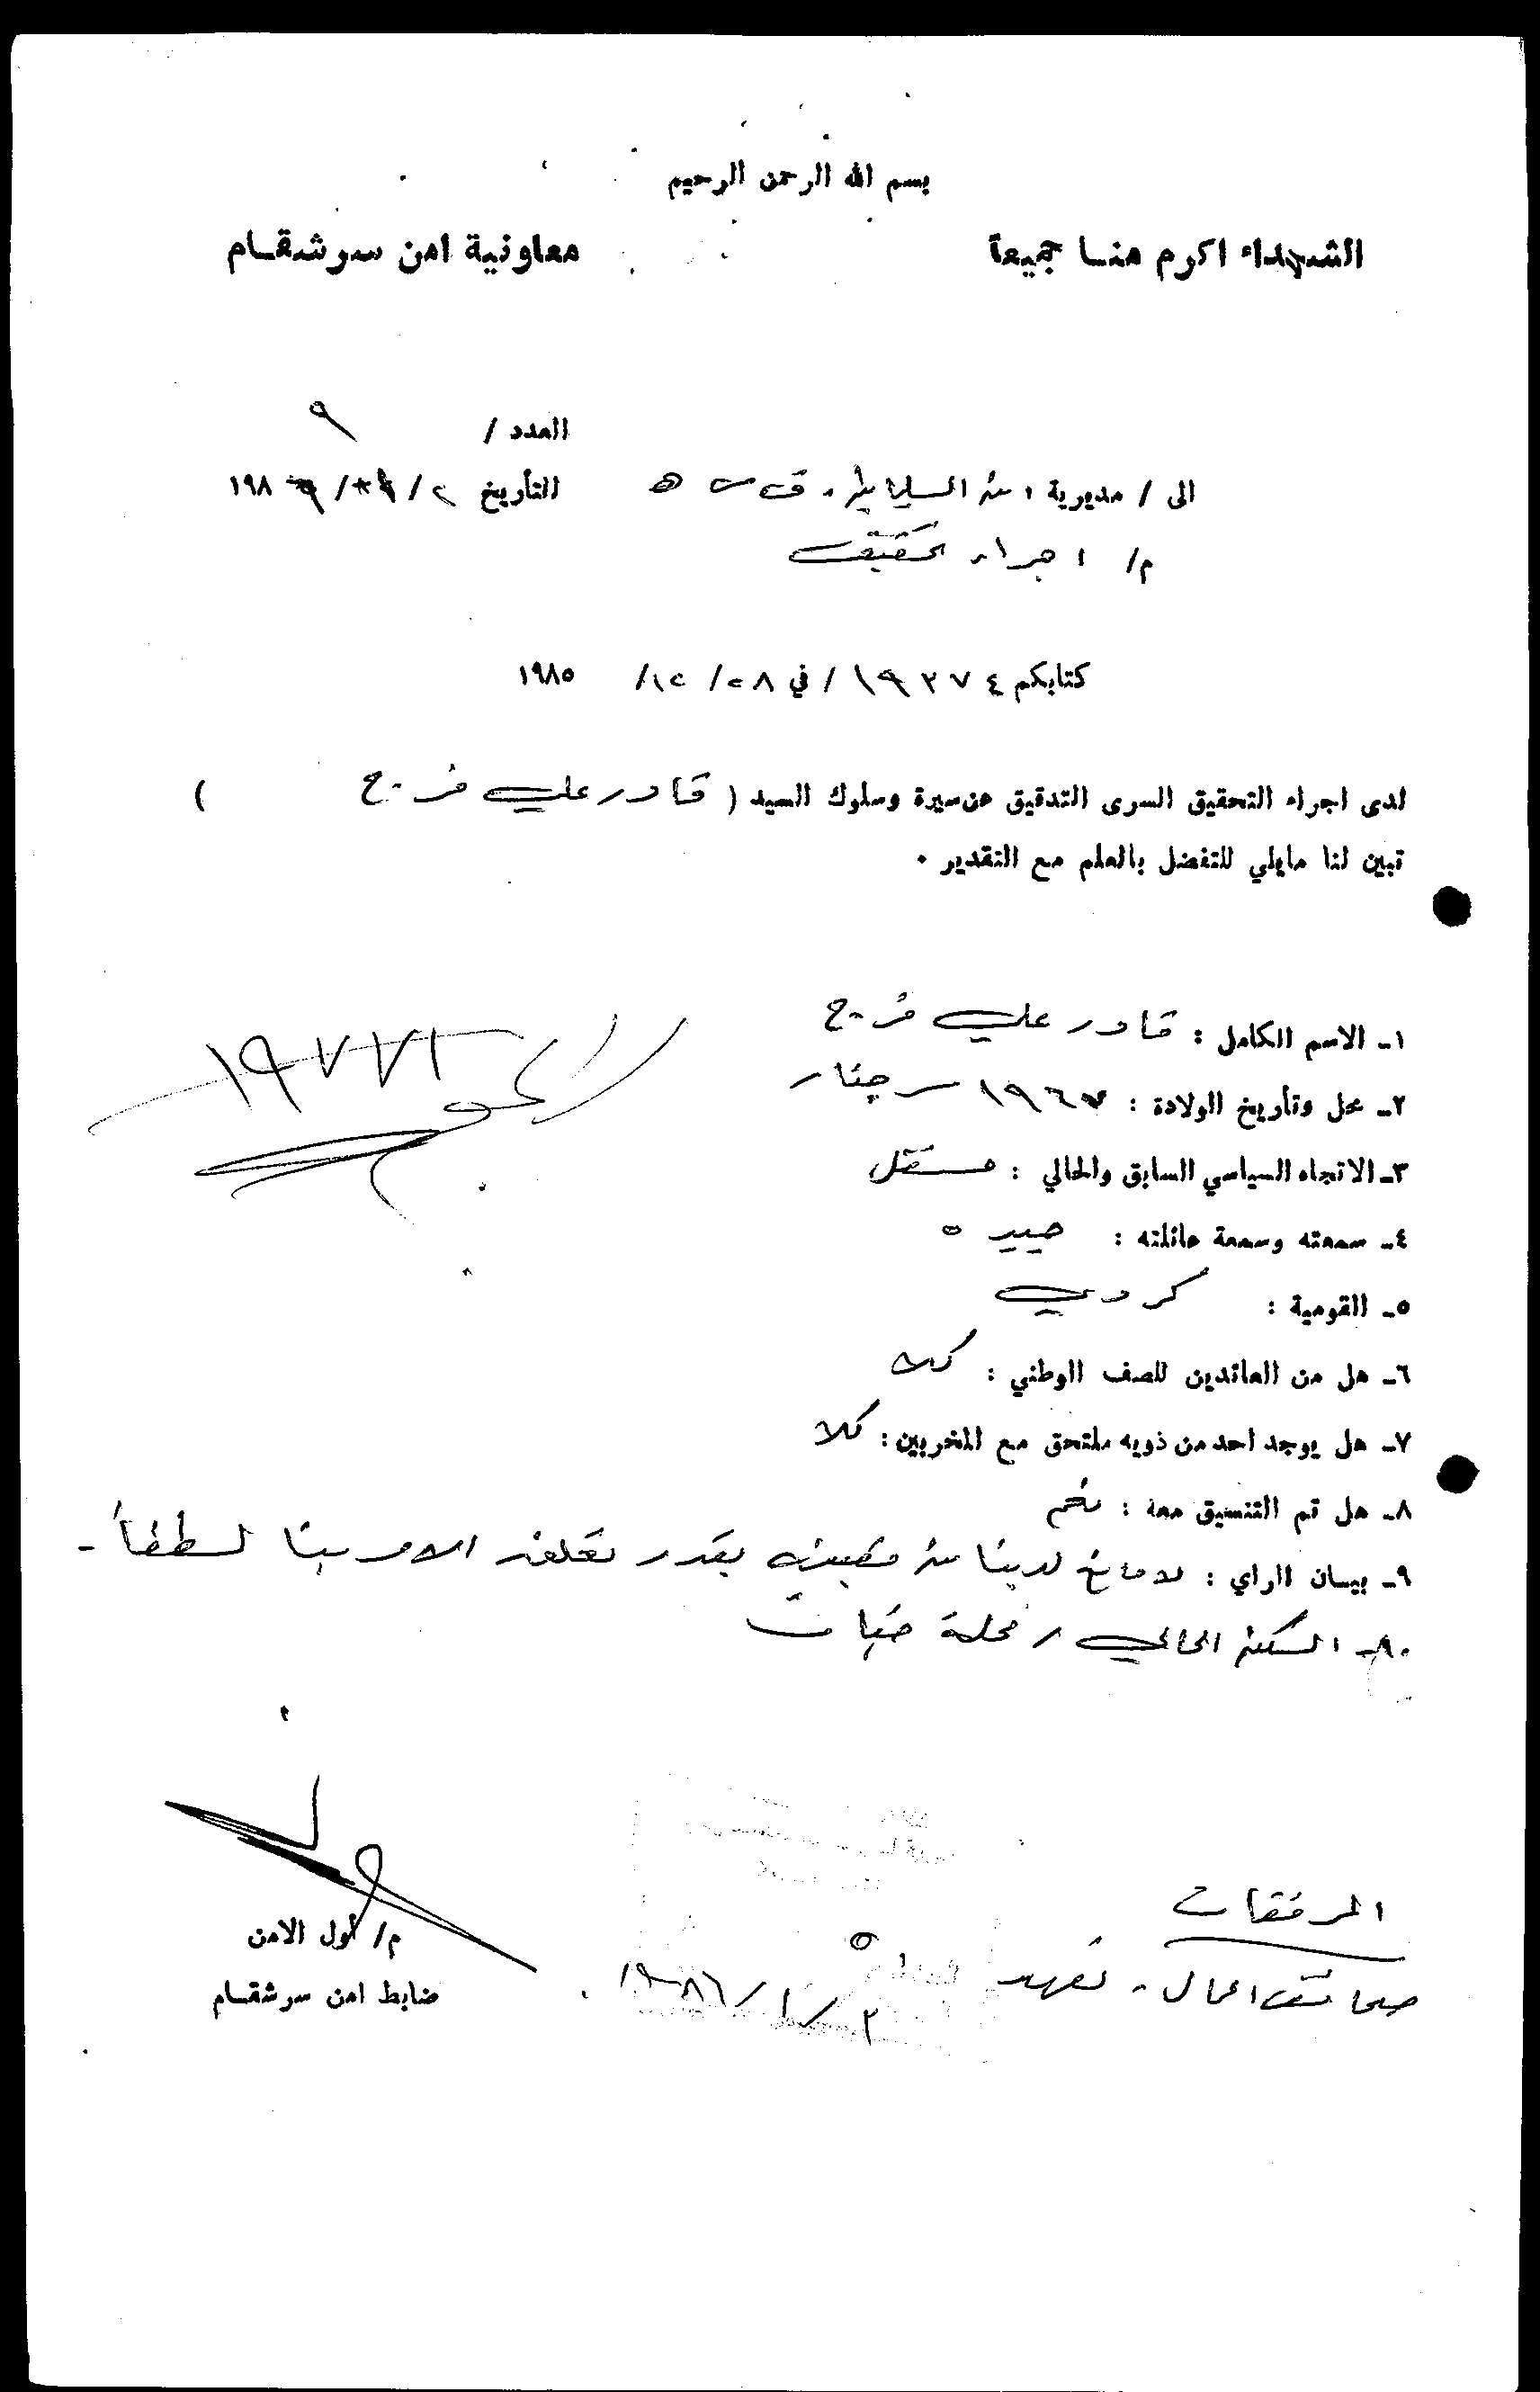 بسم الله الرحمن الرحيم
الشهداء اكرم منا جميعاً
معاونية امن سرشقام
العدد / ٩
الى / مديرية امن السليمانية ق س ٥
التأريخ ٢ / ١ / ١٩٨٦
م/ اجراء تحقيق
كتابكم ١٩٣٧٤ / في ٢٨ / ١٢ / ١٩٨٥
لدى اجراء التحقيق السرى التدقيق عن سيرة وسلوك السيد ( قادر علي فرج )
تبين لنا مايلي للتفضل بالعلم مع التقدير ٠
١ـ الاسم الكامل : قادر علي فرج
٢ـ محل وتأريخ الولادة : ١٩٦٧ سرجنار
٣ـ الاتجاه السياسي السابق والحالي : مستقل
٤ـ سمعته وسمعة عائلته : جيده
٥ـ القومية : كردي
٦ـ هل من العائدين للصف الوطني : كلا
٧ـ هل يوجد احد من ذويه ملتحق مع المخربين : كلا
٨ـ هل تم التنسيق معه : نعم
٩ـ بيسان الراي : لا مانع لدينا من بقدر تعلق الامر بنا لطفاً -
١٠ـ السكن الحالي / محلة
١٩٧٧١
م/ أول الامن
ضابط امن سرشقام
المرفقات
تعهد
٢ / ١ / ١٩٨٦